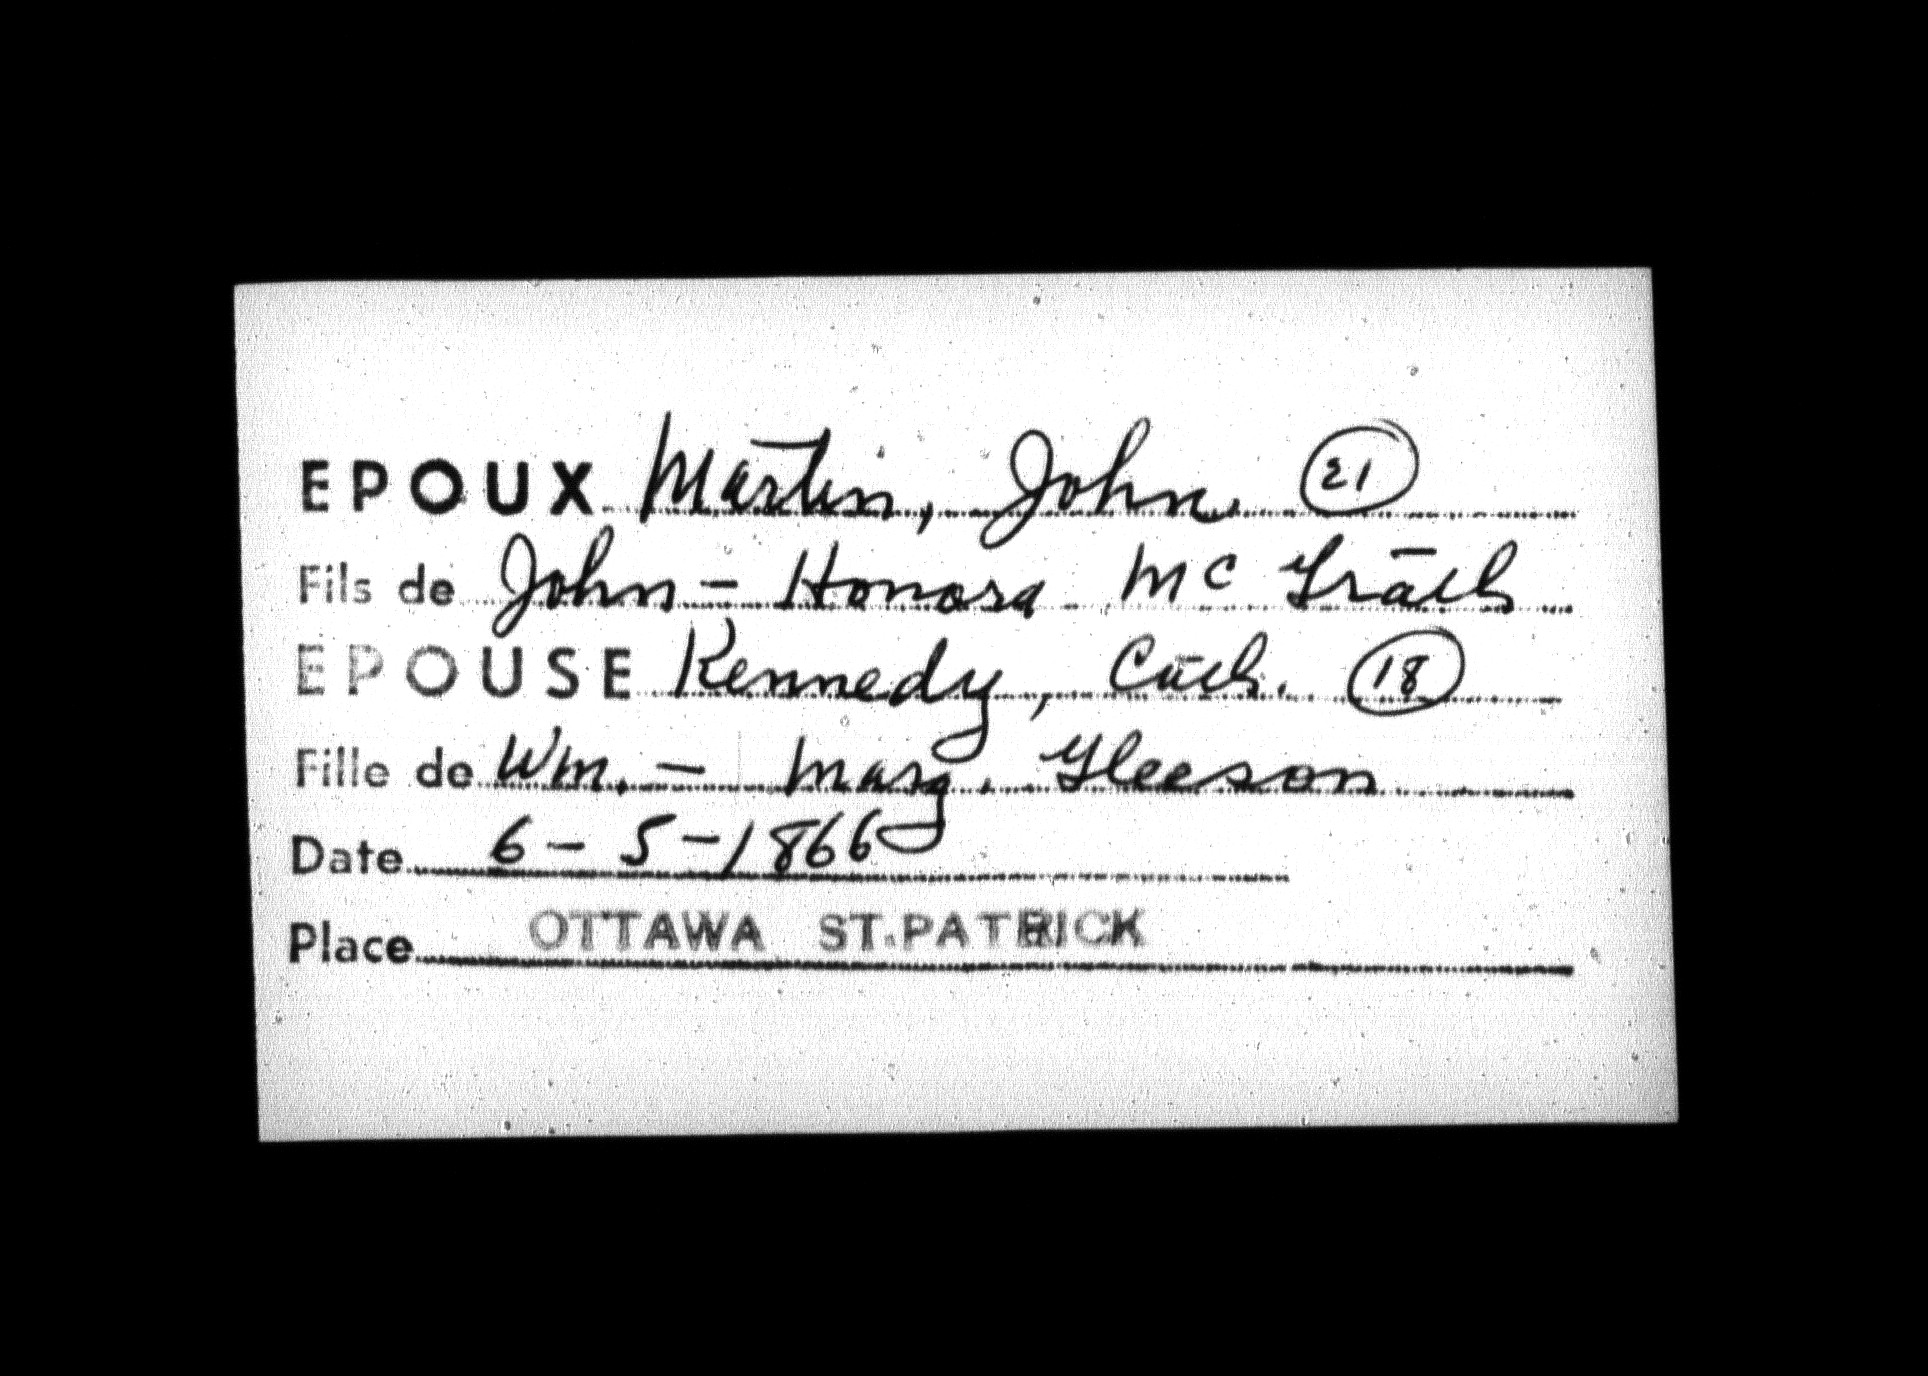 EPOUX Martin, John. 21
Fils de John - Honora Mc Grath
EPOUSE Kennedy, Cath. 18
Fille de Wm. - Marg. Gleeson
Date 6 - 5 - 1866
Place OTTAWA ST.PATRICK